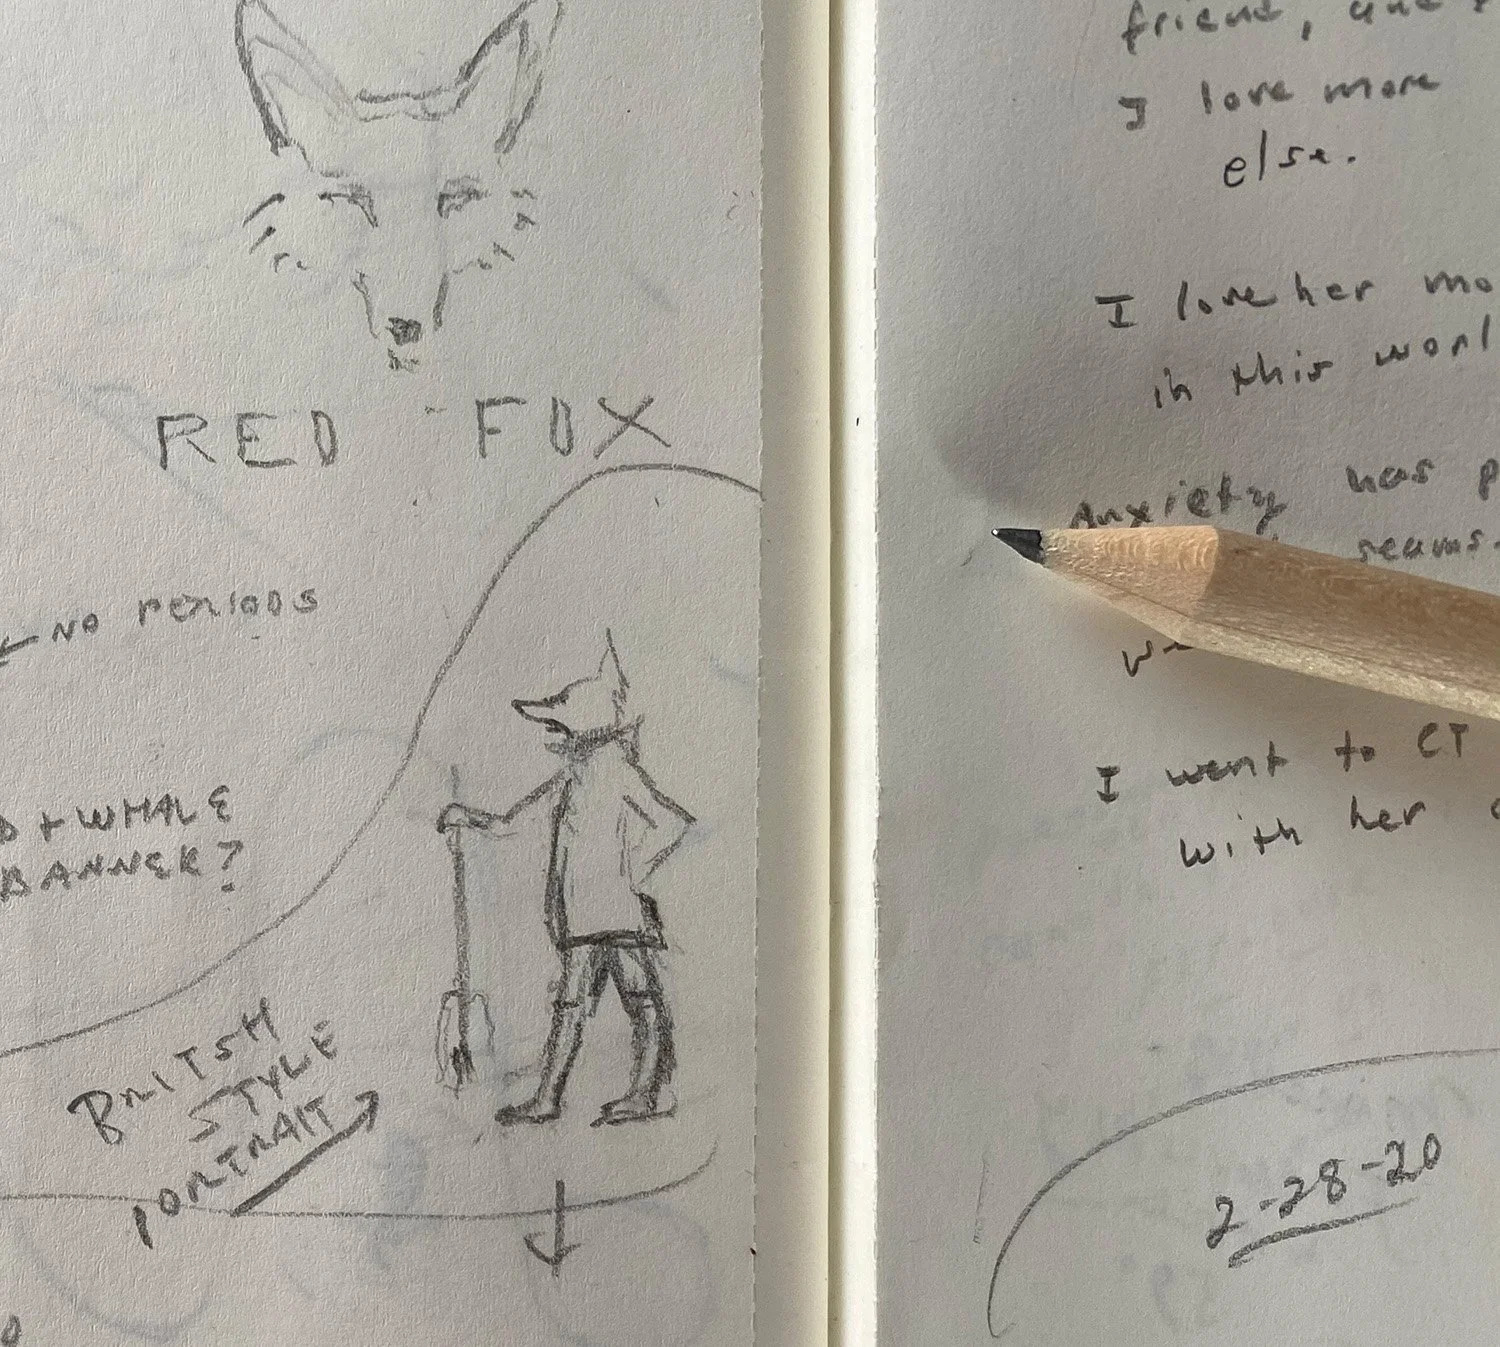 RED FOX
← NO PERIODS
+ WHALE
BANNER?
BRITSH
STYLE
PORTRAIT
friend,
I love more
else.
I love her mo
in this worl
Anxiety has p
seams.
we
I went to CT
with her
2-28-20